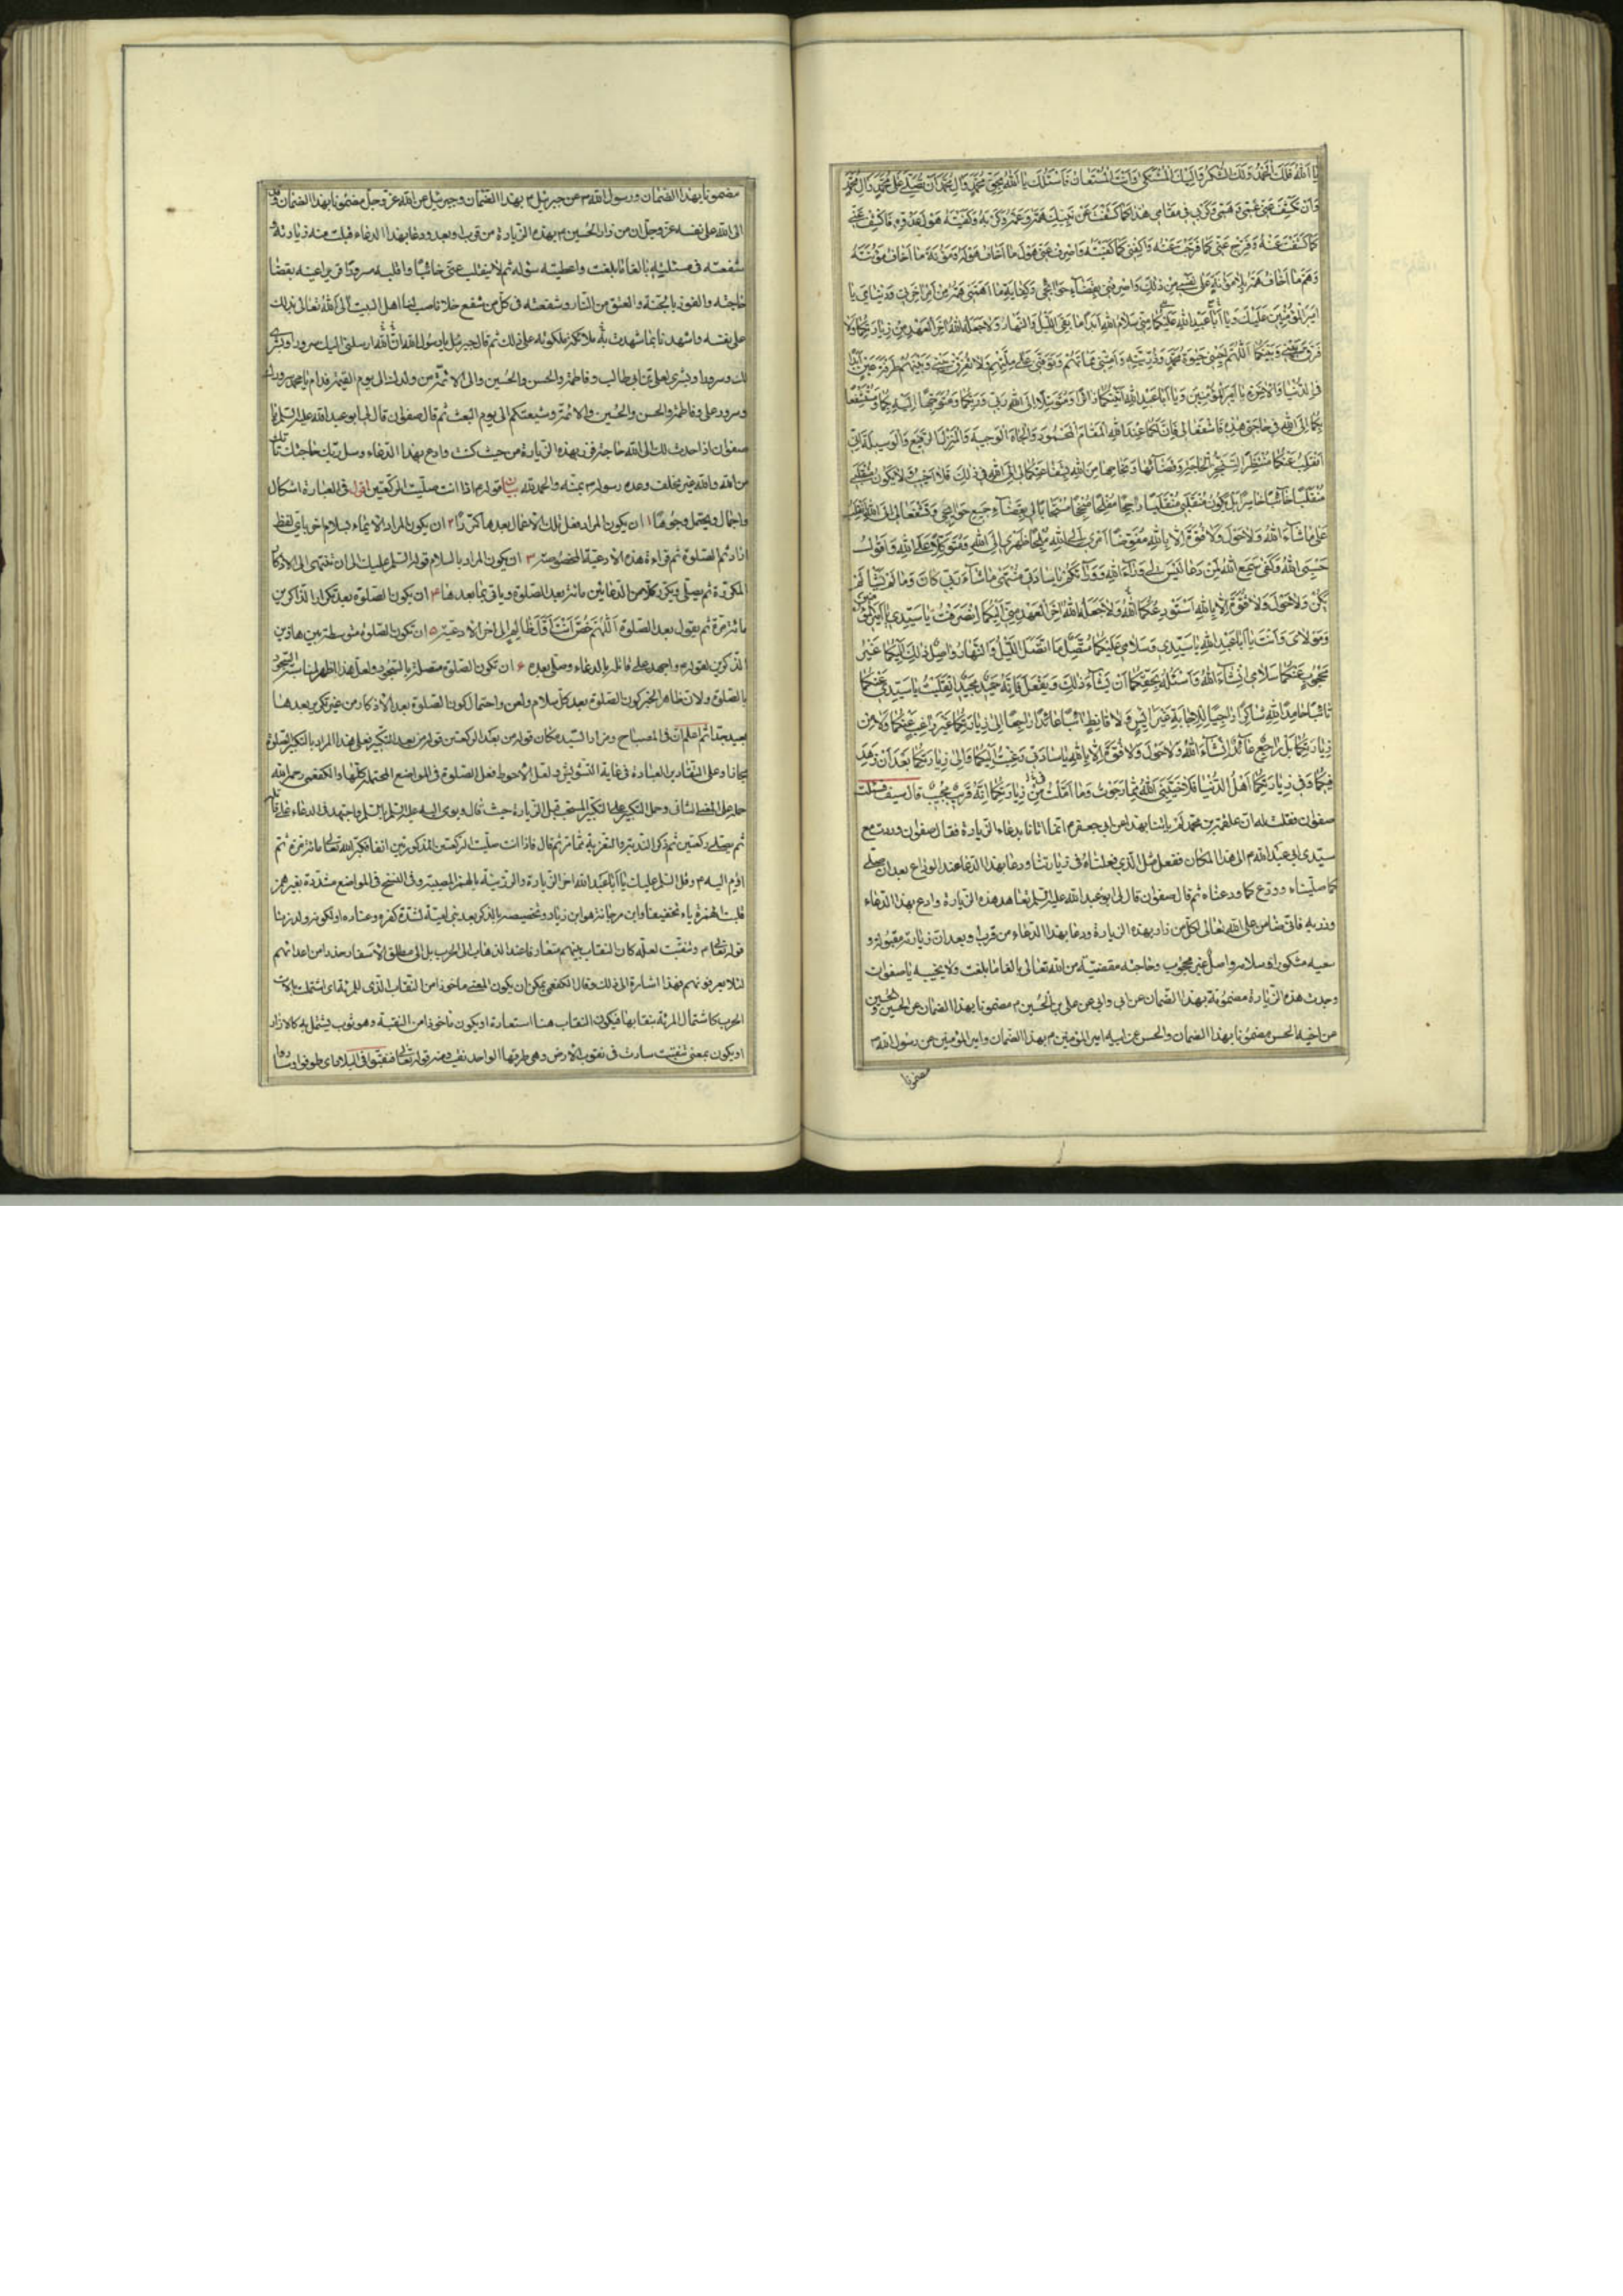 يا اَللهُ فَلَكَ الْحَمْدُ وَلَكَ الشُّكْرُ وَاِلَيْكَ الْمُشْتَكى وَاَنْتَ الْمُسْتَعانُ فَاَسْئَلُكَ يا اَللهُ بِحَقِّ مُحَمَّدٍ وَالِ مُحَمَّدٍ اَنْ تُصَلِّيَ عَلى مُحَمَّدٍ وَالِ مُحَمَّدٍ
وَاَنْ تَكْشِفَ عَنّي غَمّي وَهَمّي وَكَرْبي في مَقامي هذا كَما كَشَفْتَ عَنْ نَبِيِّكَ هَمَّهُ وَغَمَّهُ وَكَرْبَهُ وَكَفَيْتَهُ هَوْلَ عَدُوِّهِ فَاكْشِفْ عَنّي
كَما كَشَفْتَ عَنْهُ وَفَرِّجْ عَنّي كَما فَرَّجْتَ عَنْهُ وَاكْفِني كَما كَفَيْتَهُ وَاصْرِفْ عَنّي هَوْلَ ما اَخافُ هَوْلَهُ وَمَؤُنَةَ ما اَخافُ مَؤُنَتَهُ
وَهَمَّ ما اَخافُ هَمَّهُ بِلا مَؤُنَةٍ عَلى نَفْسي مِنْ ذلِكَ وَاصْرِفْني بِقَضآءِ حَوائِجي وَكِفايَةِ ما اَهَمَّني هَمُّهُ مِنْ اَمْرِ اخِرَتي وَدُنْيايَ يا
اَميرَ الْمُؤْمِنينَ عَلَيْكَ وَيا اَبا عَبْدِ اللهِ عَلَيْكُما مِنّي سَلامُ اللهِ اَبَداً ما بَقِيَ اللَّيْلُ وَالنَّهارُ وَلا جَعَلَهُ اللهُ اخِرَ الْعَهْدِ مِنْ زِيارَتِكُما وَلا
فَرَّقَ بَيْني وَبَيْنَكُما اَللّهُمَّ اَحْيِني حَيوةَ مُحَمَّدٍ وَذُرِّيَّتِهِ وَاَمِتْني مَماتَهُمْ وَتَوَفَّني عَلى مِلَّتِهِمْ وَلا تُفَرِّقْ بَيْني وَبَيْنَهُمْ طَرْفَةَ عَيْنٍ اَبَداً
فِي الدُّنْيا وَالاخِرَةِ يا اَميرَ الْمُؤْمِنينَ وَيا اَبا عَبْدِ اللهِ اَتَيْتُكُما زائِراً وَمُتَوَسِّلاً اِلَى اللهِ رَبّي وَرَبِّكُما وَمُتَوَجِّهاً اِلَيْهِ بِكُما وَمُسْتَشْفِعاً
بِكُما اِلَى اللهِ في حاجَتي هذِهِ فَاشْفَعا لي فَاِنَّ لَكُما عِنْدَ اللهِ الْمَقامَ الْمَحْمُودَ وَالْجاهَ الْوَجيهَ وَالْمَنْزِلَ الرَّفيعَ وَالْوَسيلَةَ اِنّي
اَنْقَلِبُ عَنْكُما مُنْتَظِراً لِتَنَجُّزِ الْحاجَةِ وَقَضآئِها وَنَجاحِها مِنَ اللهِ بِشَفاعَتِكُما لي اِلَى اللهِ في ذلِكَ فَلا اَخيبُ وَلا يَكُونُ مُنْقَلَبي
مُنْقَلَباً خائِباً خاسِراً بَلْ يَكُونُ مُنْقَلَبي مُنْقَلَباً راجِحاً مُفْلِحاً مُنْجِحاً مُسْتَجاباً لي بِقَضآءِ جَميعِ حَوائِجي وَتَشَفَّعا لي اِلَى اللهِ اَنْقَلِبُ
عَلى ما شآءَ اللهُ وَلا حَوْلَ وَلا قُوَّةَ اِلاّ بِاللهِ مُفَوِّضاً اَمْري اِلَى اللهِ مُلْجِأً ظَهْري اِلَى اللهِ وَمُتَوَكِّلاً عَلَى اللهِ وَاَقُولُ
حَسْبِيَ اللهُ وَكَفى سَمِعَ اللهُ لِمَنْ دَعا لَيْسَ لي وَرآءَ اللهِ وَوَرآءَكُمْ يا سادَتي مُنْتَهى ما شآءَ رَبّي كانَ وَما لَمْ يَشَأْ لَمْ
يَكُنْ وَلا حَوْلَ وَلا قُوَّةَ اِلاّ بِاللهِ اَسْتَوْدِعُكُما اللهَ وَلا جَعَلَهُ اللهُ اخِرَ الْعَهْدِ مِنّي اِلَيْكُما اِنْصَرَفْتُ يا سَيِّدي يا اَميرَ الْمُؤْمِنينَ
وَمَوْلايَ وَاَنْتَ يا اَبا عَبْدِ اللهِ يا سَيِّدي وَسَلامي عَلَيْكُما مُتَّصِلٌ مَا اتَّصَلَ اللَّيْلُ وَالنَّهارُ واصِلٌ ذلِكَ اِلَيْكُما غَيْرُ
مَحْجُوبٍ عَنْكُما سَلامي اِنْ شآءَ اللهُ وَاَسْئَلُهُ بِحَقِّكُما اَنْ يَشآءَ ذلِكَ وَيَفْعَلَ فَاِنَّهُ حَميدٌ مَجيدٌ اِنْقَلَبْتُ يا سَيِّدَيَّ عَنْكُما
تائِباً حامِداً لِلّهِ شاكِراً راجِياً لِلاِجابَةِ غَيْرَ ايِسٍ وَلا قانِطٍ ائِباً عائِداً راجِعاً اِلى زِيارَتِكُما غَيْرَ راغِبٍ عَنْكُما وَلا مِنْ
زِيارَتِكُما بَلْ راجِعٌ عائِدٌ اِنْ شآءَ اللهُ وَلا حَوْلَ وَلا قُوَّةَ اِلاّ بِاللهِ يا سادَتي رَغِبْتُ اِلَيْكُما وَاِلى زِيارَتِكُما بَعْدَ اَنْ زَهِدَ
فيكُما وَفي زِيارَتِكُما اَهْلُ الدُّنْيا فَلا خَيَّبَنِيَ اللهُ مِمّا رَجَوْتُ وَما اَمَّلْتُ في زِيارَتِكُما اِنَّهُ قَريبٌ مُجيبٌ قال سيف فسئلت
صفوان فقلت له ان علقمة بن محمد لم ياتنا بهذا عن ابي جعفر م انما اتانا بدعاء الزيارة فقال صفوان وردت مع
سيدي ابي عبد الله م الى هذا المكان ففعل مثل الذي فعلناه في زيارتنا ودعا بهذا الدعاء عند الوداع بعد ان صلى
كما صلينا وودع كما ودعنا ثم قال صفوان قال لي ابو عبد الله عليه السلم تعاهد هذه الزيارة وادع بهذا الدعاء
وزر به فاني ضامن على الله تعالى لكل من زار بهذه الزيارة ودعا بهذا الدعاء من قرب او بعد ان زيارته مقبولة و
سعيه مشكور وسلامه واصل غير محجوب وحاجته مقضية من الله تعالى بالغا ما بلغت ولا يخيبه يا صفوان
وجدت هذه الزيارة مضمونة بهذا الضمان عن ابي وابي عن علي بن الحسين م مضمونا بهذا الضمان عن الحسين والحسين
من اخيه الحسن مضمونا بهذا الضمان والحسن عن ابيه امير المؤمنين م بهذا الضمان وامير المؤمنين عن رسول الله ص
مضمونا
مضمونا بهذا الضمان ورسول الله ص عن جبرئيل م بهذا الضمان وجبرئيل عن الله عز وجل مضمونا بهذا الضمان وقد
الى الله على نفسه عز وجل ان من زار الحسين م بهذه الزيارة من قرب او بعد ودعا بهذا الدعاء قبلت منه زيارته و
شفعته في مسئلته بالغا ما بلغت واعطيته سؤله ثم لا ينقلب عني خائبا واقلبه مسرورا قريرا عينه بقضاء
حاجته والفوز بالجنة والعتق من النار وشفعته في كل من شفع خلا ناصب لنا اهل البيت الى الله تعالى بذلك
على نفسه واشهدنا بما شهدت به ملائكة ملكوته على ذلك ثم قال جبرئيل يا رسول الله ان الله ارسلني اليك سرورا وبشرى
لك وسرورا وبشرى لعلي بن ابي طالب وفاطمة والحسن والحسين والى الائمة من ولدك الى يوم القيمة فدام يا محمد سرورك
وسرور علي وفاطمة والحسن والحسين والائمة وشيعتكم الى يوم البعث ثم قال صفوان قال لي ابو عبد الله عليه السلم يا
صفوان اذا حدث لك الى الله حاجة فزر بهذه الزيارة من حيث كنت وادع بهذا الدعاء وسل ربك حاجتك تاتك
من الله والله غير مخلف وعده رسوله ص بمنه والحمد لله بيان قوله م اذا انت صليت الركعتين اقول في العبارة اشكال
واجمال ويحتمل وجوها ١ ان يكون المراد فعل تلك الاعمال بعدها كررنا ٢ ان يكون المراد الايماء بسلام اخر باي لفظ
اراد ثم الصلوة ثم قراءة هذه الادعية المخصوصة ٣ ان يكون المراد بالسلام قوله السلم عليك الى ان تنتهي الى الاذكار
المكررة ثم يصلي ويكرر كلا من الدعائين مائة بعد الصلوة وياتي بما بعدها ٤ ان يكون الصلوة بعد تكرار الذكرين
مائة مرة ثم يقول بعد الصلوة اَللّهُمَّ خُصَّ اَنْتَ اَوَّلَ ظالِمٍ الى اخر الادعية ٥ ان تكون الصلوة متوسطة بين هاذين
الذكرين لقوله م واجتهد على قاتله بالدعاء وصلى بعده ٦ ان تكون الصلوة متصلة بالسجود ولعل هذا اظهر لمناسبة السجود
بالصلوة ولان ظاهر الخبر كون الصلوة بعد كل سلام ولعن واحتمال كون الصلوة بعد الاذكار من غير تكرير بعدها
بعيد جدا ثم اعلم ان في المصباح ومزار السيد مكان قوله من بعد الركعتين قوله من بعد التكبير فعلى هذا المراد بالتكبير الصلوة
مجازا وعلى التقادير العبارة في غاية التشويش ولعل الاحوط فعل الصلوة في المواضع المحتملة كلها والكفعمي رحمه الله
ثم يصلي ركعتين ثم ذكر الندبة والتعزية بتمامه ثم قال فاذا انت صليت الركعتين المذكورتين انفا فكبر الله تعالى مائة مرة ثم
اوم اليه م وقل السلم عليك يا ابا عبد الله اخر الزيارة
قلبت الهمزة ياء تخفيفا وابن مرجانة هو ابن زياد وتخصيصه بالذكر بعد بني امية لشدة كفره وعناده او لكونه ولد زنا
قوله تعالى م وتنقبت لعله كان النقاب بينهم متعارفا عند الذهاب الى الحرب بل الى مطلق الاسفار حذرا من اعدائهم
لئلا يعرفونهم فهذا اشارة الى ذلك وقال الكفعمي يمكن ان يكون المعنى ماخوذا من النقاب الذي للمرئة اي اشتملت بالات
الحرب كاشتمال المرئة بنقابها فيكون النقاب هنا استعارة او يكون ماخوذا من النقبة وهو ثوب يشتمل به كالازار
او يكون بمعنى تنقبت سارت في نقوب الارض وهي طرقها الواحد نقب ومنه قوله تعالى فنقبوا في البلاد اي طوفوا وساروا